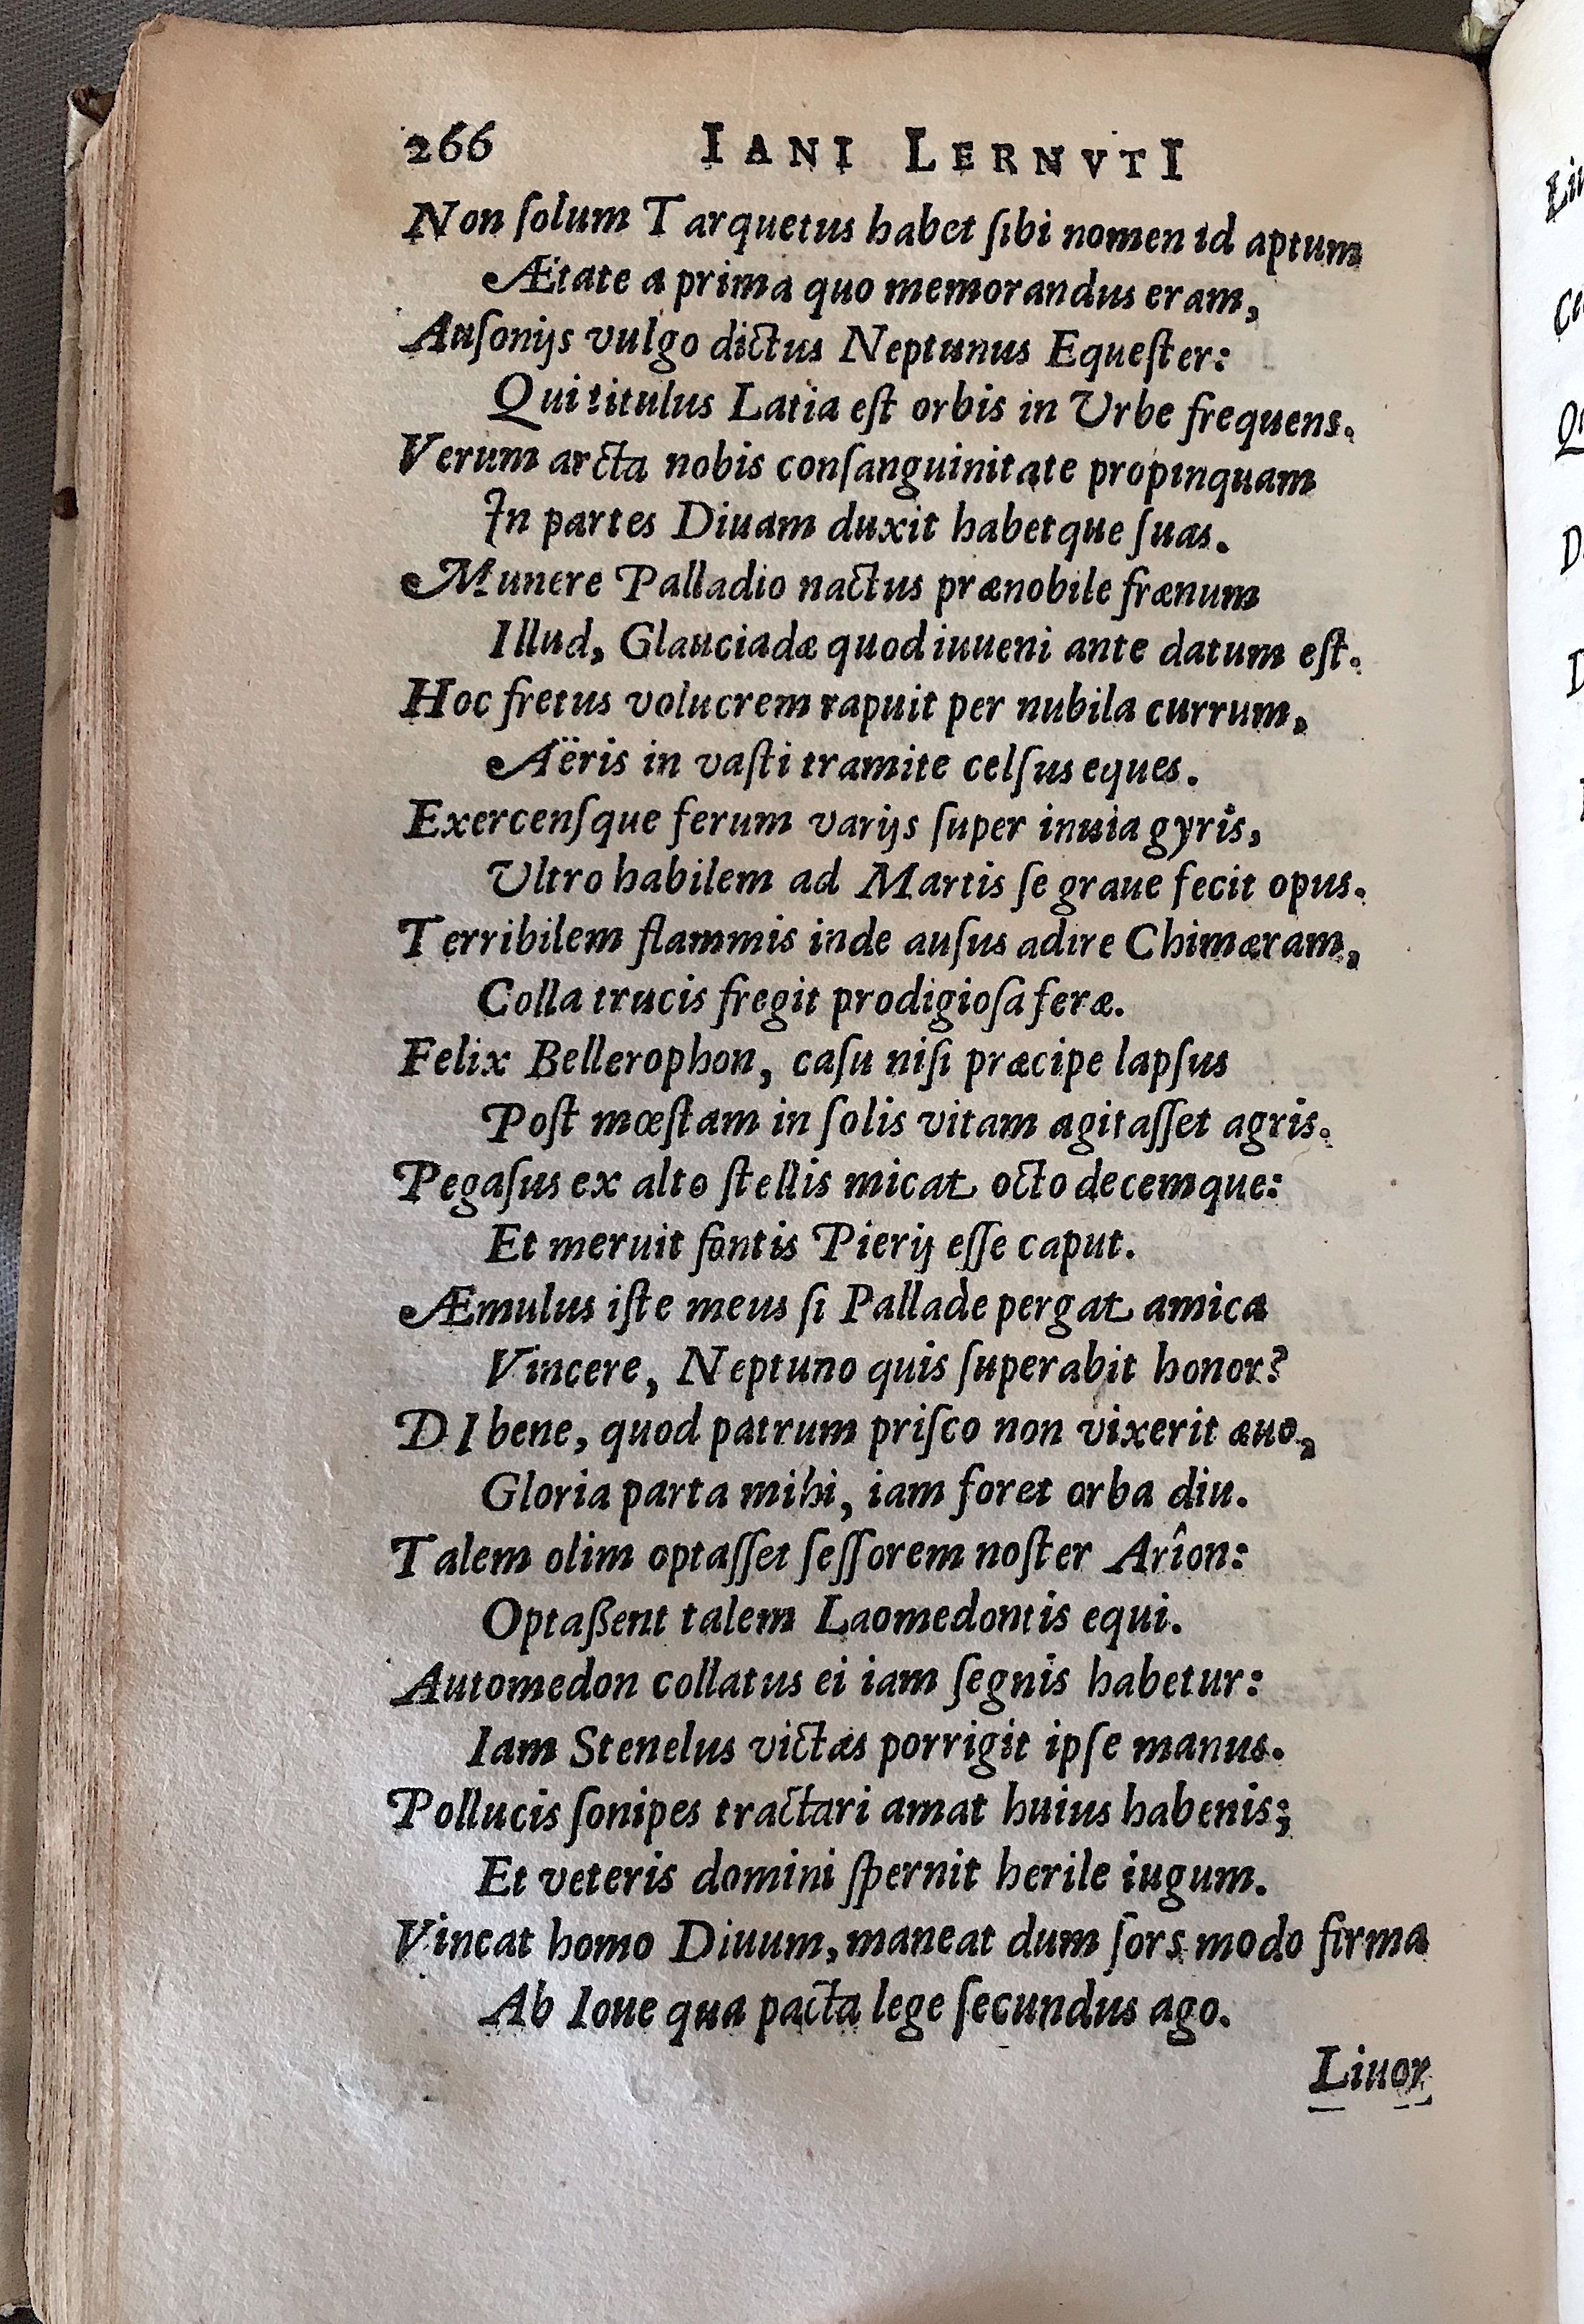 266 IANI LERNVTI
Non ſolum Tarquetus habet ſibi nomen id aptum
Ætate a prima quo memorandus eram,
Auſonijs vulgo dictus Neptunus Equeſter:
Qui titulus Latia eſt orbis in Vrbe frequens.
Verum arcta nobis conſanguinitate propinquam
In partes Diuam duxit habetque ſuas.
Munere Palladio nactus prænobile frænum
Illud, Glauciadæ quod iuueni ante datum eſt.
Hoc fretus volucrem rapuit per nubila currum,
Aëris in vaſti tramite celſus eques.
Exercenſque ferum varijs ſuper inuia gyris,
Vltro habilem ad Martis ſe graue fecit opus.
Terribilem flammis inde auſus adire Chimæram,
Colla trucis fregit prodigioſa feræ.
Felix Bellerophon, caſu niſi præcipe lapſus
Poſt mœſtam in ſolis vitam agitaſſet agris.
Pegaſus ex alto ſtellis micat octo decemque:
Et meruit fontis Pierij eſſe caput.
Æmulus iſte meus ſi Pallade pergat amica
Vincere, Neptuno quis ſuperabit honor?
DI bene, quod patrum priſco non vixerit æuo,
Gloria parta mihi, iam foret orba diu.
Talem olim optaſſet ſeſſorem noſter Arîon:
Optaßent talem Laomedontis equi.
Automedon collatus ei iam ſegnis habetur:
Iam Stenelus victas porrigit ipſe manus.
Pollucis ſonipes tractari amat huius habenis;
Et veteris domini ſpernit herile iugum.
Vincat homo Diuum, maneat dum ſors modo firma
Ab Ioue qua pacta lege ſecundus ago.
Liuor